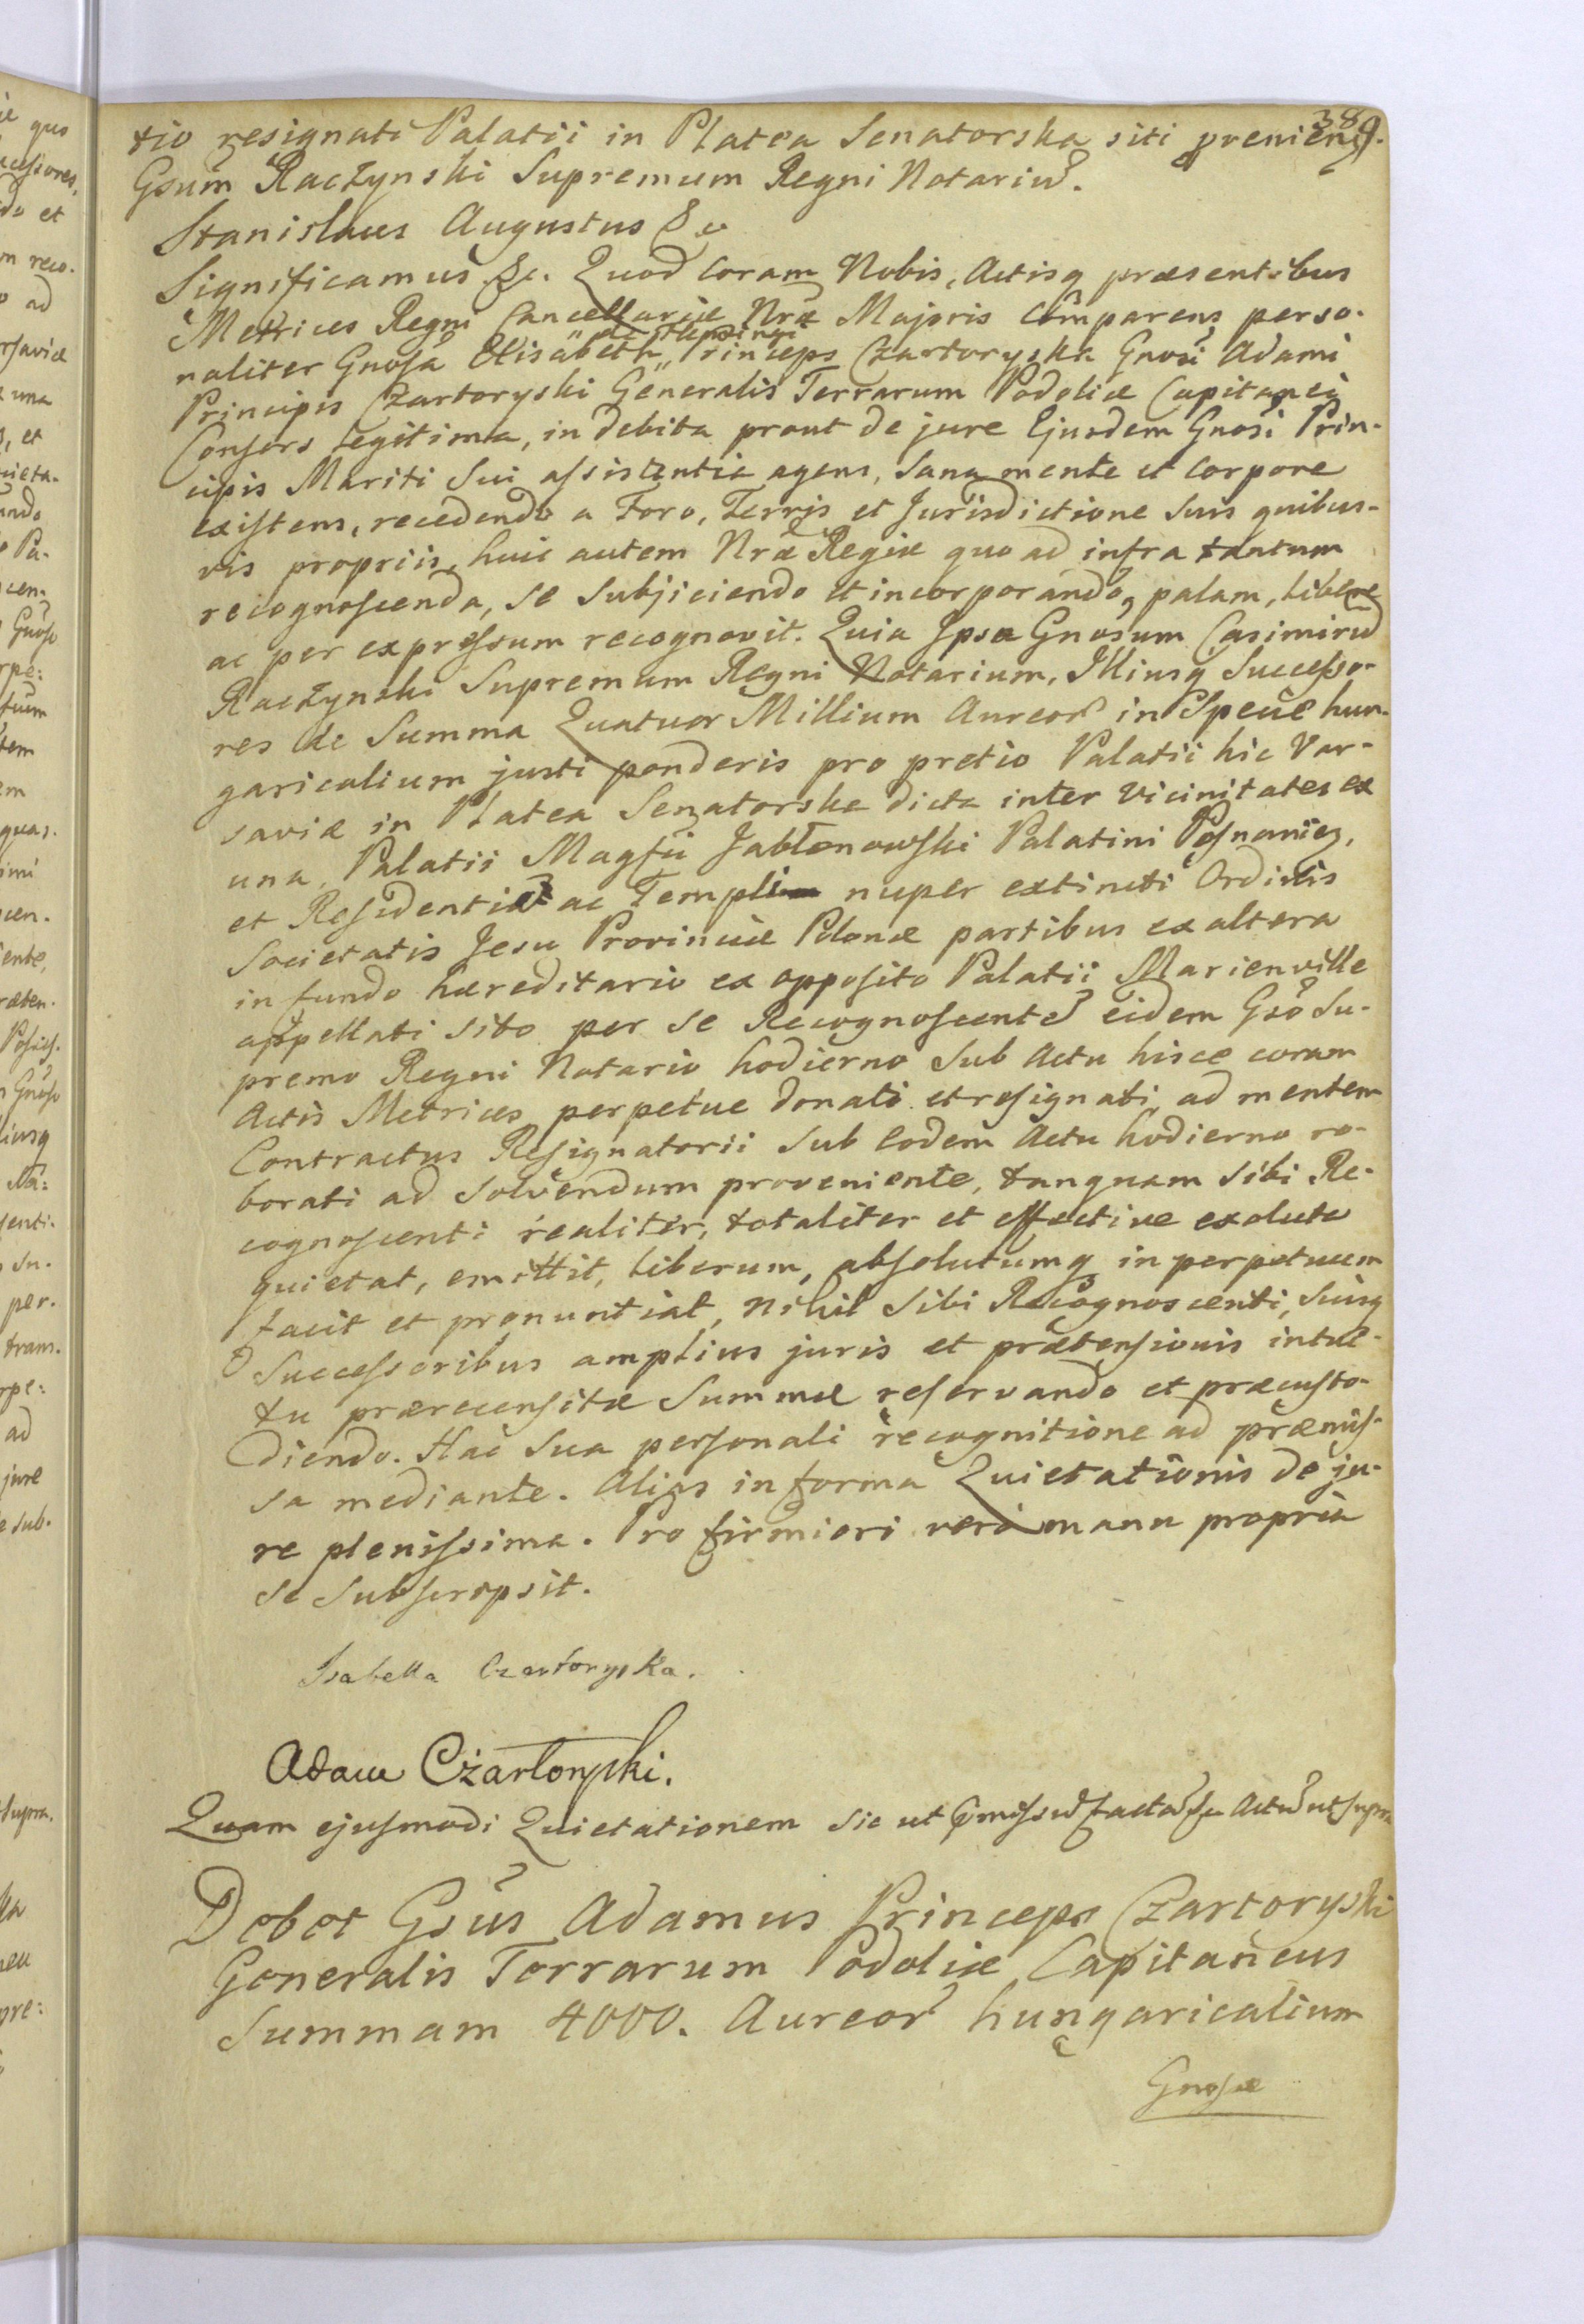 389.
tio resignati Palatii in Platea Senatorska siti pvenien
Gsum Raczynski Supremum Regni Notariu.
Stanislaus Augustus &c
Significamus &c. Quod Coram Nobis, Actisq præsentibus
Metrices Regni Cancellariæ Nræ Majoris Comparens perso-
de Flemingi
naliter Gnosa Elisabeth Princeps Czartoryska Gnosi Adami
Principis Czartoryski Generalis Terrarum Podoliæ Capitanei
Consors legitima, in debita prout de jure Ejusdem Gnosi Prin-
cipis Mariti Sui assistentia agens, Sana mente et Corpore
existens, recedendo a Foro, Terris et Jurisdictione Suis quibus-
vis propriis, huic autem Nræ Regiæ quo ad infra tantum
recognoscenda, se Subjiciendo et incorporando, palam, libere
ac per expressum recognovit. Quia Ipsa Gnosum Casimiru
Raczynski Supremum Regni Notarium, Illiusq Successo-
res de Summa Quatuor Millium Aureor in Specie hun-
garicalium justi ponderis pro pretio Palatii hic Var-
saviæ in Platea Senatorska dicta inter Vicinitates ex
una, Palatii Magfci Jabłonowski Palatini Posnanien,
et Residentia ac Templi nuper extincti Ordinis
Societatis Jesu Provinciæ Polonæ partibus ex altera
in fundo hæreditario ex opposito Palatii Marienville
appellati sito per se Recognoscente eidem Gso Su-
premo Regni Notario hodierno Sub Actu hisce coram
Actis Metrices perpetue donati et resignati ad mentem
Contractus Resignatorii Sub Eodem Actu hodierno ro-
borati ad Solvendum proveniente, tanquam Sibi Re-
cognoscenti realiter, totaliter et effective exoluta
quietat, emittit, liberum, absolutumq in perpetuum
facit et pronuntiat, Nihil Sibi Recognoscenti, Suisq
Successoribus amplius juris et prætensionis intui-
tu prærecensitæ Summæ reservando et præcusto-
diendo. Hac Sua personali recognitione ad præmis-
sa mediante. Alias in forma Quietationis de ju-
re plenissima. Pro firmiori vero manu propria
se Subscripsit.
Isabella Czartoryska.
Adam Czartoryski.
Quam ejusmodi Quietationem Sic ut Actu ut Supra
Debet Gsus Adamus Princeps Czartoryski
Generalis Terrarum Podoliæ Capitaneus
Summam 4000. Aureor hungaricalium
Gnosæ